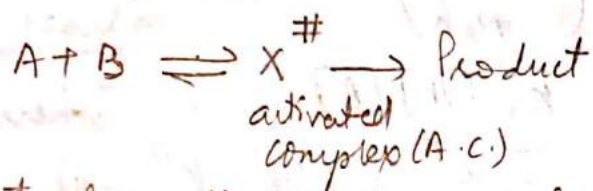 A + B ⇌ X^# → Product
activated
complex (A.C.)